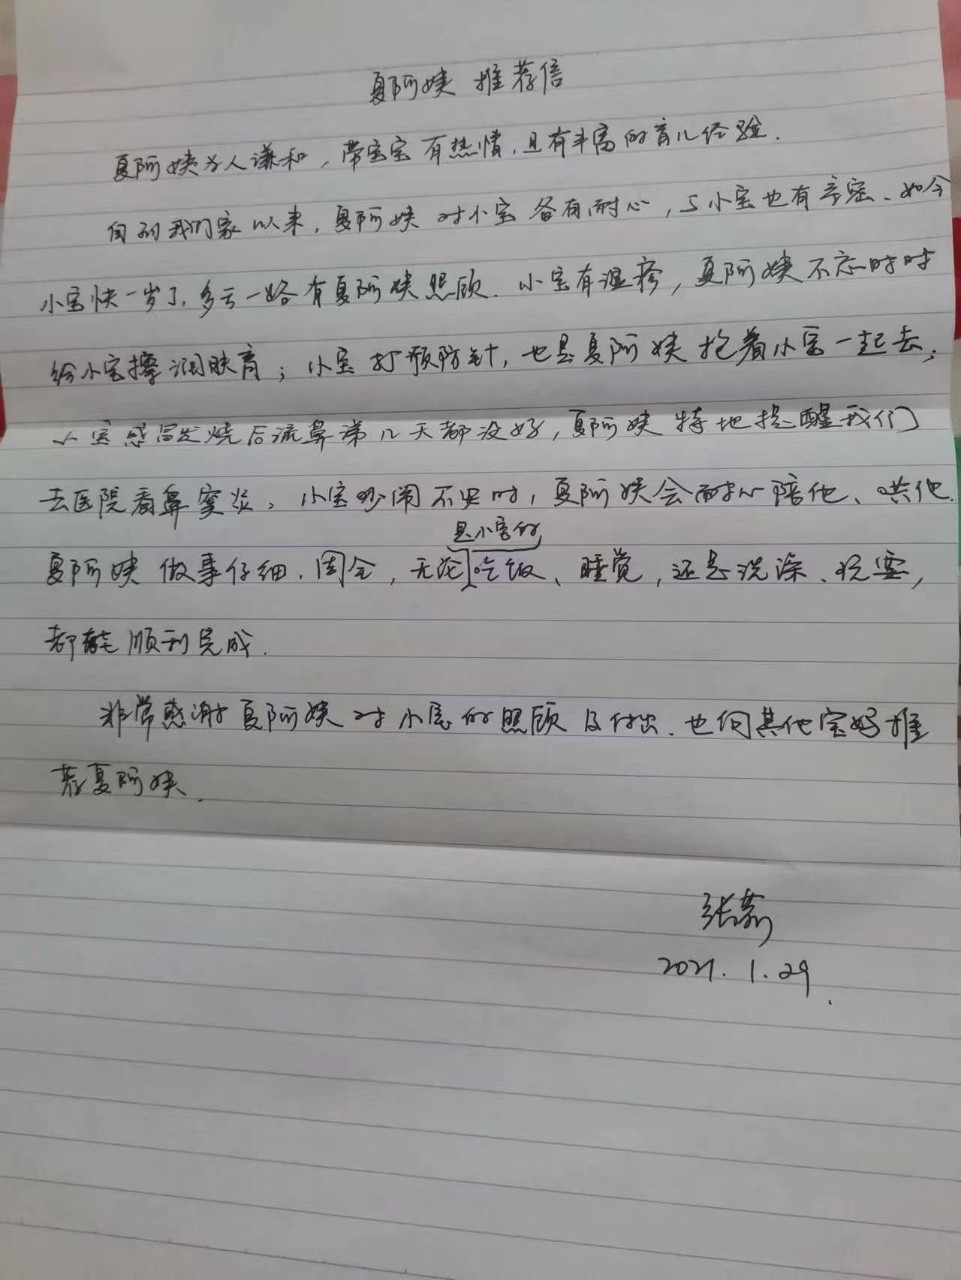 夏阿姨 推荐信
夏阿姨为人谦和，带宝宝有热情，且有丰富的育儿经验.
自到我们家以来，夏阿姨对小宝备有耐心，与小宝也有亲密、如今
小宝快一岁了，多亏一路有夏阿姨照顾. 小宝有湿疹，夏阿姨不忘时时
给小宝擦润肤膏；小宝打预防针，也是夏阿姨抱着小宝一起去；
小宝感冒发烧后流鼻涕几天都没好，夏阿姨特地提醒我们
去医院看鼻窦炎。小宝吵闹不安时，夏阿姨会耐心陪他、哄他.
是小宝的
夏阿姨做事仔细、周全，无论吃饭、睡觉，还是洗澡、玩耍，
都能顺利完成.
非常感谢夏阿姨对小宝的照顾及付出. 也向其他宝妈推
荐夏阿姨.
张
2021.1.29.